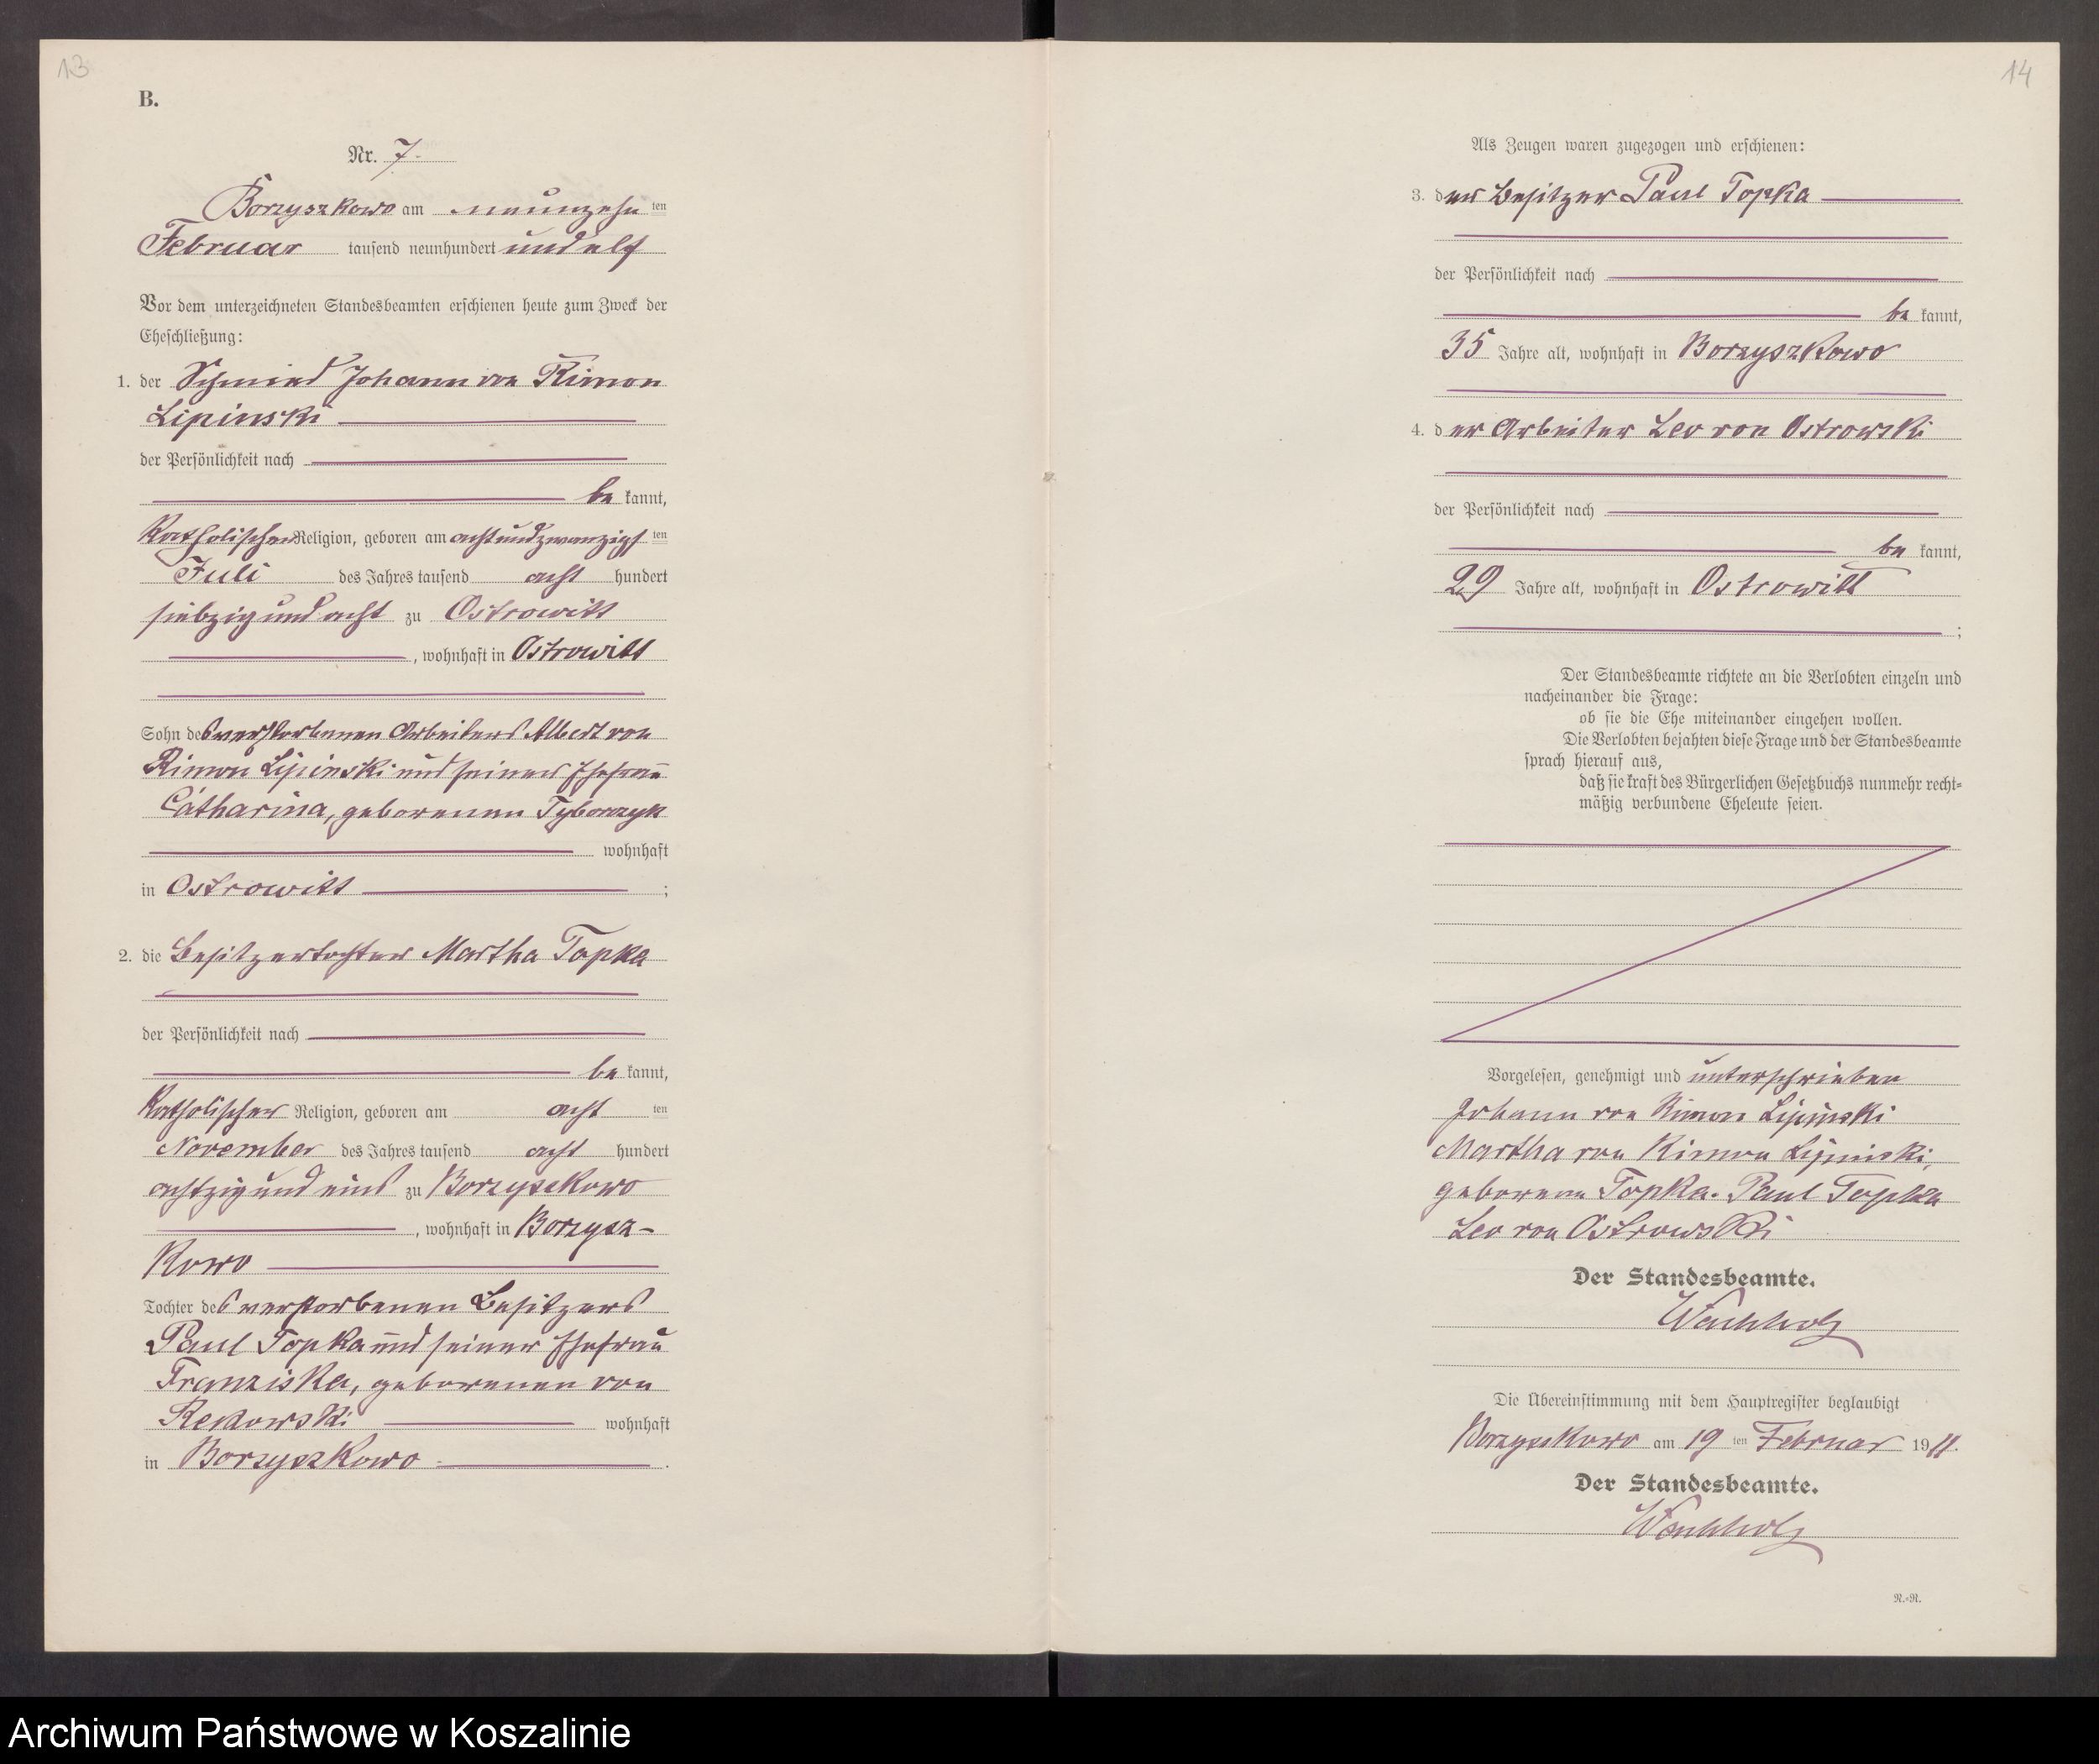 13
B.
Nr. 7.
Borzyszkowo am neunzehn ten
Februar tausend neunhundert und elf
Vor dem unterzeichneten Standesbeamten erschienen heute zum Zweck der
Eheschließung:
1. der Schmied Johann von Kimon
Lipinski
der Persönlichkeit nach
be kannt,
katholischer Religion, geboren am achtundzwanzigs ten
Juli des Jahres tausend acht hundert
siebzig und acht zu Ostrowitt
, wohnhaft in Ostrowitt
Sohn des verstorbenen Arbeiters Albert von
Kimon Lipinski und seiner Ehefrau
Catharina, geborenen Tyborczyk
wohnhaft
in Ostrowitt ;
2. die Besitzertochter Martha Topka
der Persönlichkeit nach
be kannt,
katholischer Religion, geboren am acht ten
November des Jahres tausend acht hundert
achtzig und eins zu Borzyszkowo
, wohnhaft in Borzysz-
kowo
Tochter des verstorbenen Besitzers
Paul Topka und seiner Ehefrau
Franziska, geborenen von
Rekowski wohnhaft
in Borzyszkowo .
14
Als Zeugen waren zugezogen und erschienen:
3. der Besitzer Paul Topka
der Persönlichkeit nach
be kannt,
35 Jahre alt, wohnhaft in Borzyszkowo
4. der Arbeiter Leo von Ostrowski
der Persönlichkeit nach
be kannt,
29 Jahre alt, wohnhaft in Ostrowitt
;
Der Standesbeamte richtete an die Verlobten einzeln und
nacheinander die Frage:
ob sie die Ehe miteinander eingehen wollen.
Die Verlobten bejahten diese Frage und der Standesbeamte
sprach hierauf aus,
daß sie kraft des Bürgerlichen Gesetzbuchs nunmehr recht-
mäßig verbundene Eheleute seien.
Vorgelesen, genehmigt und unterschrieben
Johann von Kimon Lipinski
Martha von Kimon Lipinski,
geborene Topka. Paul Topka
Leo von Ostrowski
Der Standesbeamte.
Wachholz
Die Übereinstimmung mit dem Hauptregister beglaubigt
Borzyszkowo am 19 ten Februar 1911.
Der Standesbeamte.
Wachholz
R.-R.
Archiwum Państwowe w Koszalinie